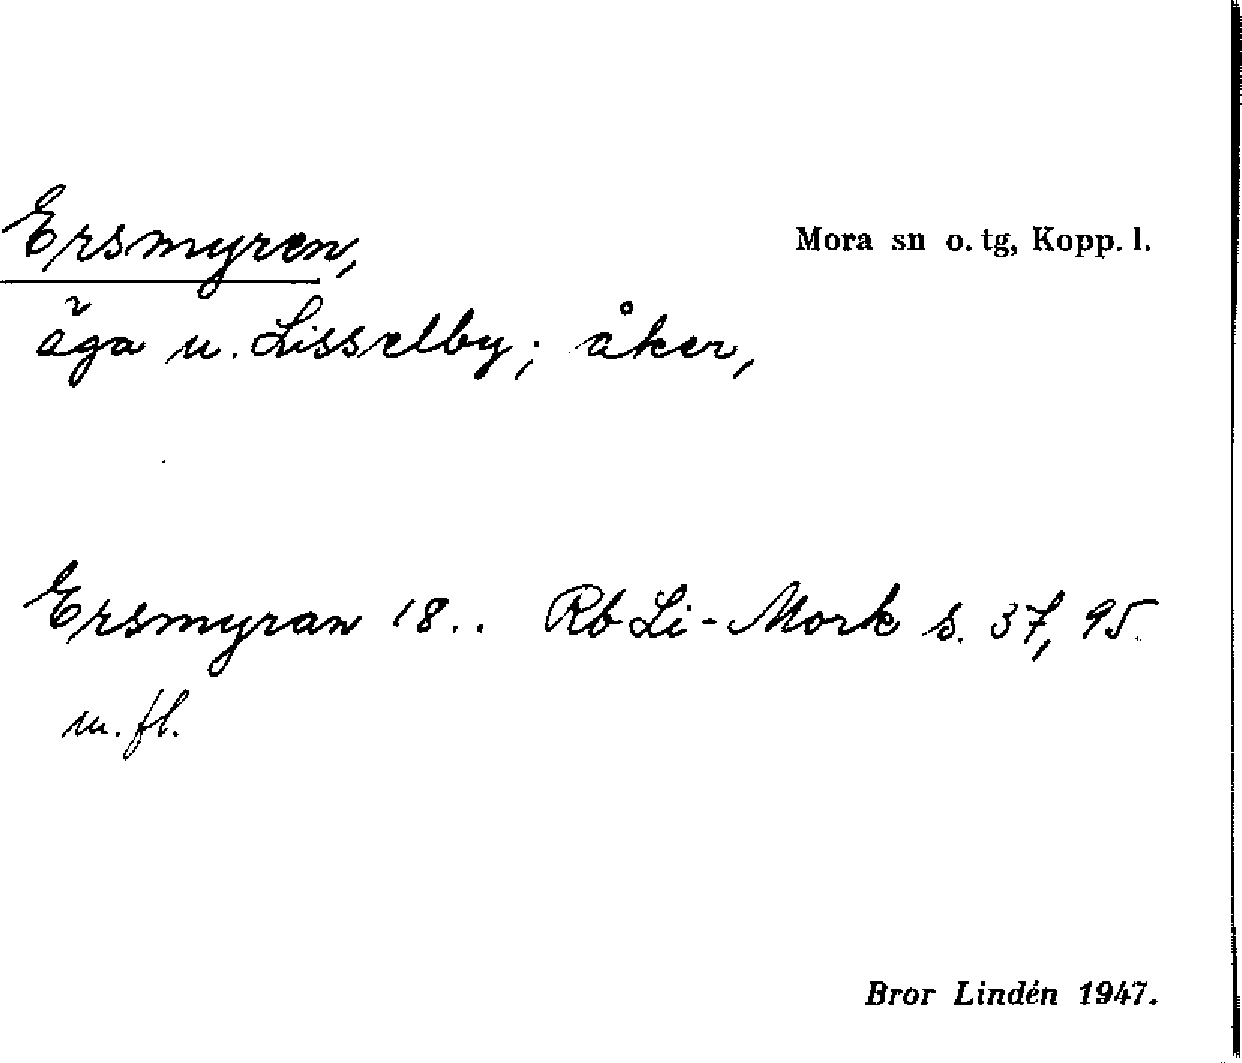 Ersmyren,
Mora sn o. tg, Kopp. l.
äga u. Lisselby; åker,
Ersmyran 18.. Rb Li-Mork s. 37, 95.
m. fl.
Bror Lindén 1947.